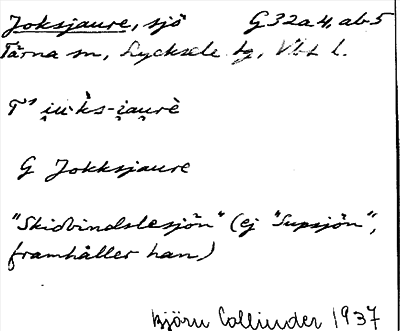 Joksjaure, sjö G32a4, ab5
Tärna sn, Lycksele tg, Vbt l.
T¹ i̯ u·k̀s-i̯au̯rè
G Jokksjaure
"Skidbindslesjön" (ej "Supsjön",
framhåller han)
Björn Collinder 1937